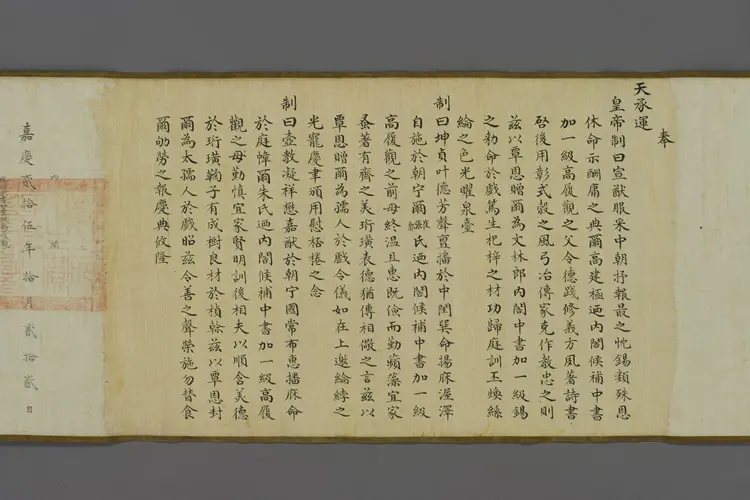 奉
天承運
皇帝制曰宣猷服采中朝抒報最之忱錫類殊恩
休命示酬庸之典爾高建極迺內閣候補中書
加一級高履觀之父令德踐修義方夙著詩書
啓後用彰式穀之風弓冶傳家克作教忠之則
茲以覃恩贈爾為文林郎內閣中書加一級錫
之勅命於戲篤生杞梓之材功歸庭訓丕煥絲
綸之色光曜泉臺
制曰坤貞叶德芳聲亶播於中閨巽命揚庥渥澤
自施於朝宁爾氏迺內閣候補中書加一級
高履觀之前母終溫且惠既儉而勤蘋藻宜家
蚤著有齊之美珩璜表德猶傳相儆之言茲以
覃恩贈爾為孺人於戲令儀如在上邀綸綍之
光寵慶聿頒用慰桮棬之念
制曰壼教凝祥懋嘉猷於朝宁國常布惠播庥命
於庭幃爾朱氏迺內閣候補中書加一級高履
觀之母勤慎宜家賢明訓後相夫以順含美德
於珩璜鞠子有成樹良材於楨榦茲以覃恩封
爾為太孺人於戲昭茲令善之聲榮施勿替食
爾劬勞之報慶典攸隆
嘉慶貳拾伍年拾月貳拾貳日